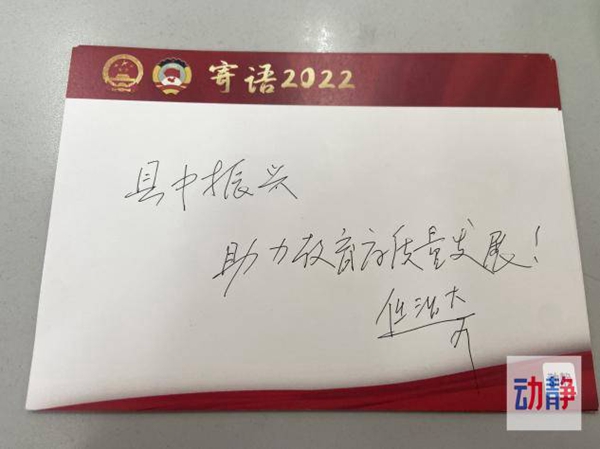 寄语2022
县中振兴
助力教育高质量发展!
动静